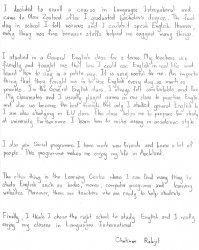 I decided to enroll a course in Languages International and
came to New Zealand after I graduated Bachelor's degree. The first
day in school I felt nervous and I couldn't speak English. However
many things was fine because staffs helped me many things.
I studied in a General English class for a term. My teachers were
friendly and taught me that how I could use English in real life and
learnt how to study in a suitable way. It is very useful to me. An important
thing that they taught me is using English every day as much as
possible. In this General English class, I always felt comfortable and fun.
My classmates and I usually played games in our class to practise English
and also we became the best friends. Not only I studied general English but
I am also studying in EU class. This class today helps me to prepare for study
at university furthermore I learn how to write essay in academic style.
I also join Social programme. I have made new friends and know a lot of
people. This programme makes me enjoy my life in Auckland.
The other thing is the Learning Centre where I can find many thing to
study English such as books, movies, computer programs and learning
websites. Moreover, there are teachers who are ready to help students.
Finally, I think I chose the right school to study English and I really
enjoy my classes in Languages International.